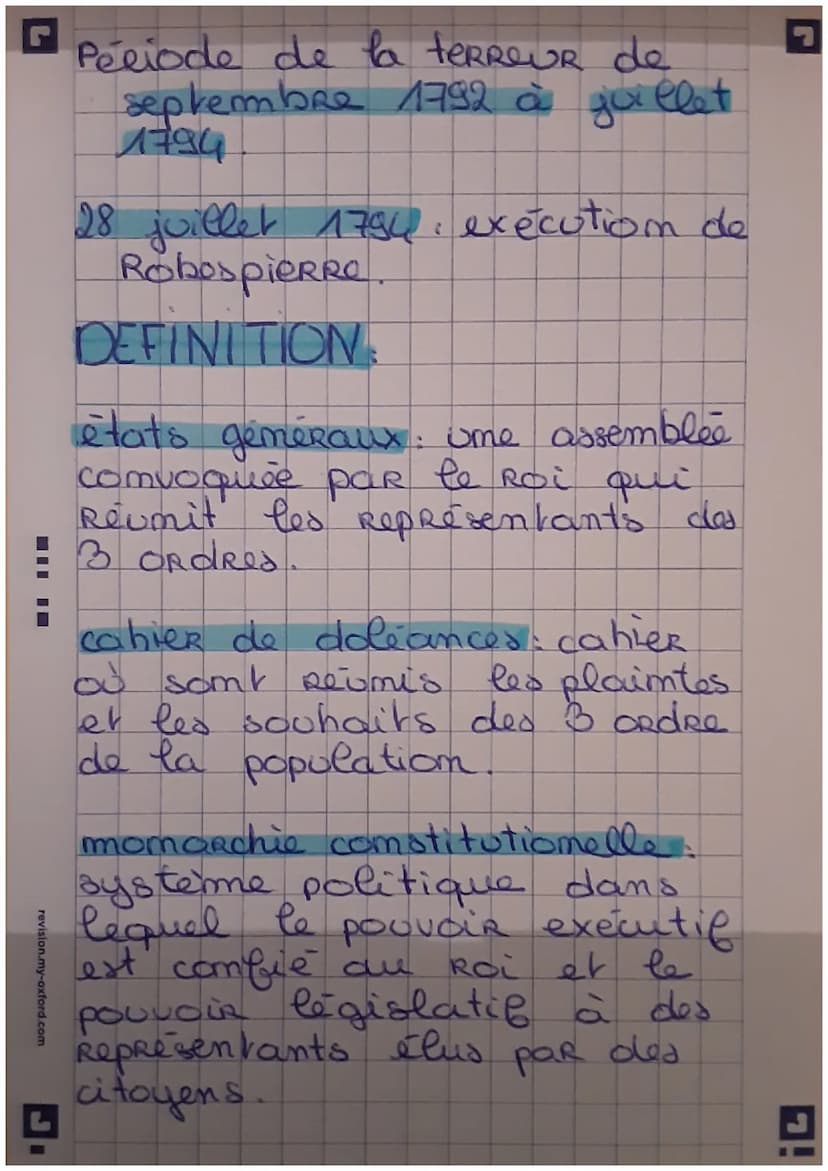 Période de la terreur de
septembre 1792 à juillet
1794.
28 juillet 1794 : exécution de
Robespierre.
DEFINITION :
états généraux : une assemblée
convoquée par le roi qui
réunit les représentants des
3 ordres.
cahier de doléances : cahier
où sont réunis les plaintes
et les souhaits des 3 ordre
de la population.
monarchie constitutionelle :
système politique dans
lequel le pouvoir exécutif
est confié au roi et le
pouvoir législatif à des
représentants élus par des
citoyens.
revision.my-oxford.com